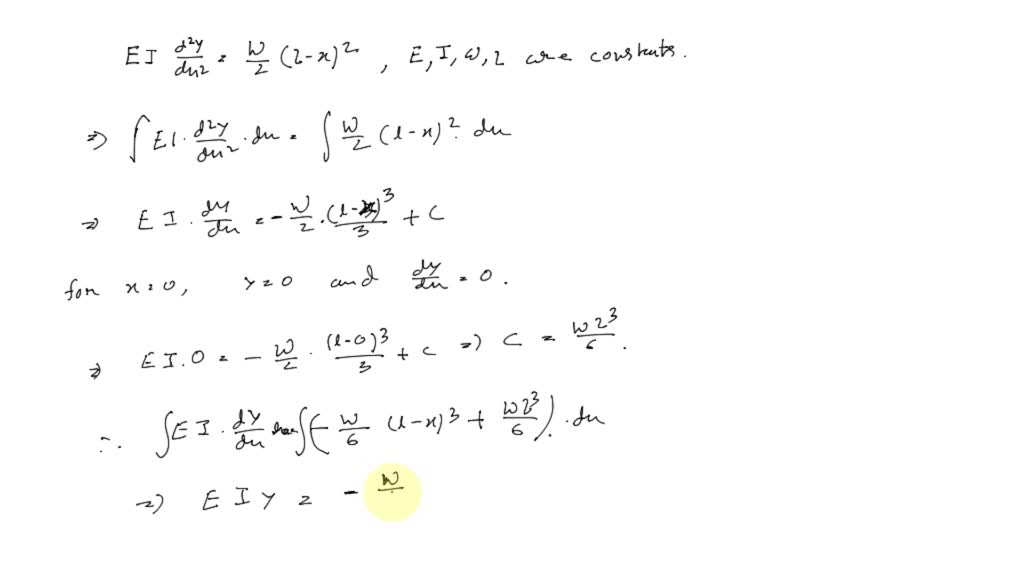 EI d²y/dx² = W/2 (l-x)², E, I, W, l are constants.
⇒ ∫ EI · d²y/dx² · dx = ∫ W/2 (l-x)² · dx
⇒ EI · dy/dx = - W/2 · (l-x)³/3 + C
for x=0, y=0 and dy/dx = 0.
⇒ EI.0 = - W/2 · (l-0)³/3 + C ⇒ C = Wl³/6.
∴ ∫ EI · dy/dx dx = ∫(- W/6 (l-x)³ + Wl³/6) · dx
⇒ EIy = - W/